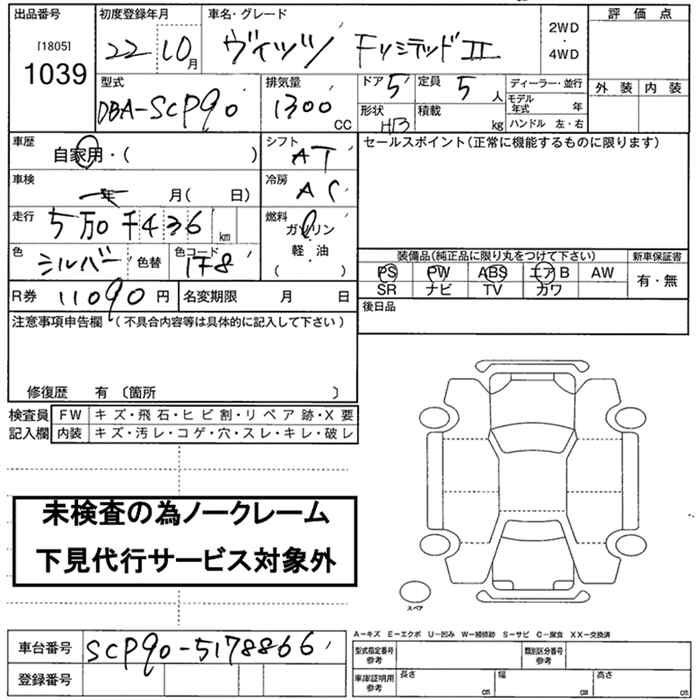 出品番号 初度登録年月 車名・グレード 評価点
[1805]
1039
22 10月 ヴィッツ Fリミテッド II
2WD
・
4WD
外装 内装
型式 排気量 ドア 5 定員 5人 ディーラー・並行
DBA-SCP90 1300CC 形状 HB 積載 kg モデル年式 年
ハンドル 左・右
車歴 自家用・( ) シフト AT セールスポイント(正常に機能するものに限ります)
車検 年 月( 日) 冷房 AC
走行 5万0千436km 燃料 ガソリン
軽・油
( )
色 シルバー 色替 色コード 1F8
装備品(純正品に限り丸をつけて下さい) 新車保証書
PS PW ABS エアB AW 有・無
SR ナビ TV カワ
R券 11090円 名変期限 月 日 後日品
注意事項申告欄(不具合内容等は具体的に記入して下さい)
修復歴 有〔箇所 〕
検査員 FW キズ・飛石・ヒビ割・リペア跡・X要
記入欄 内装 キズ・汚レ・コゲ・穴・スレ・キレ・破レ
未検査の為ノークレーム
下見代行サービス対象外
スペア
A-キズ E-エクボ U-凹み W-補修跡 S-サビ C-腐食 XX-交換済
車台番号 SCP90-5178866
登録番号
型式指定番号 参考 類別区分番号 参考
車庫証明用 参考 長さ cm 幅 cm 高さ cm